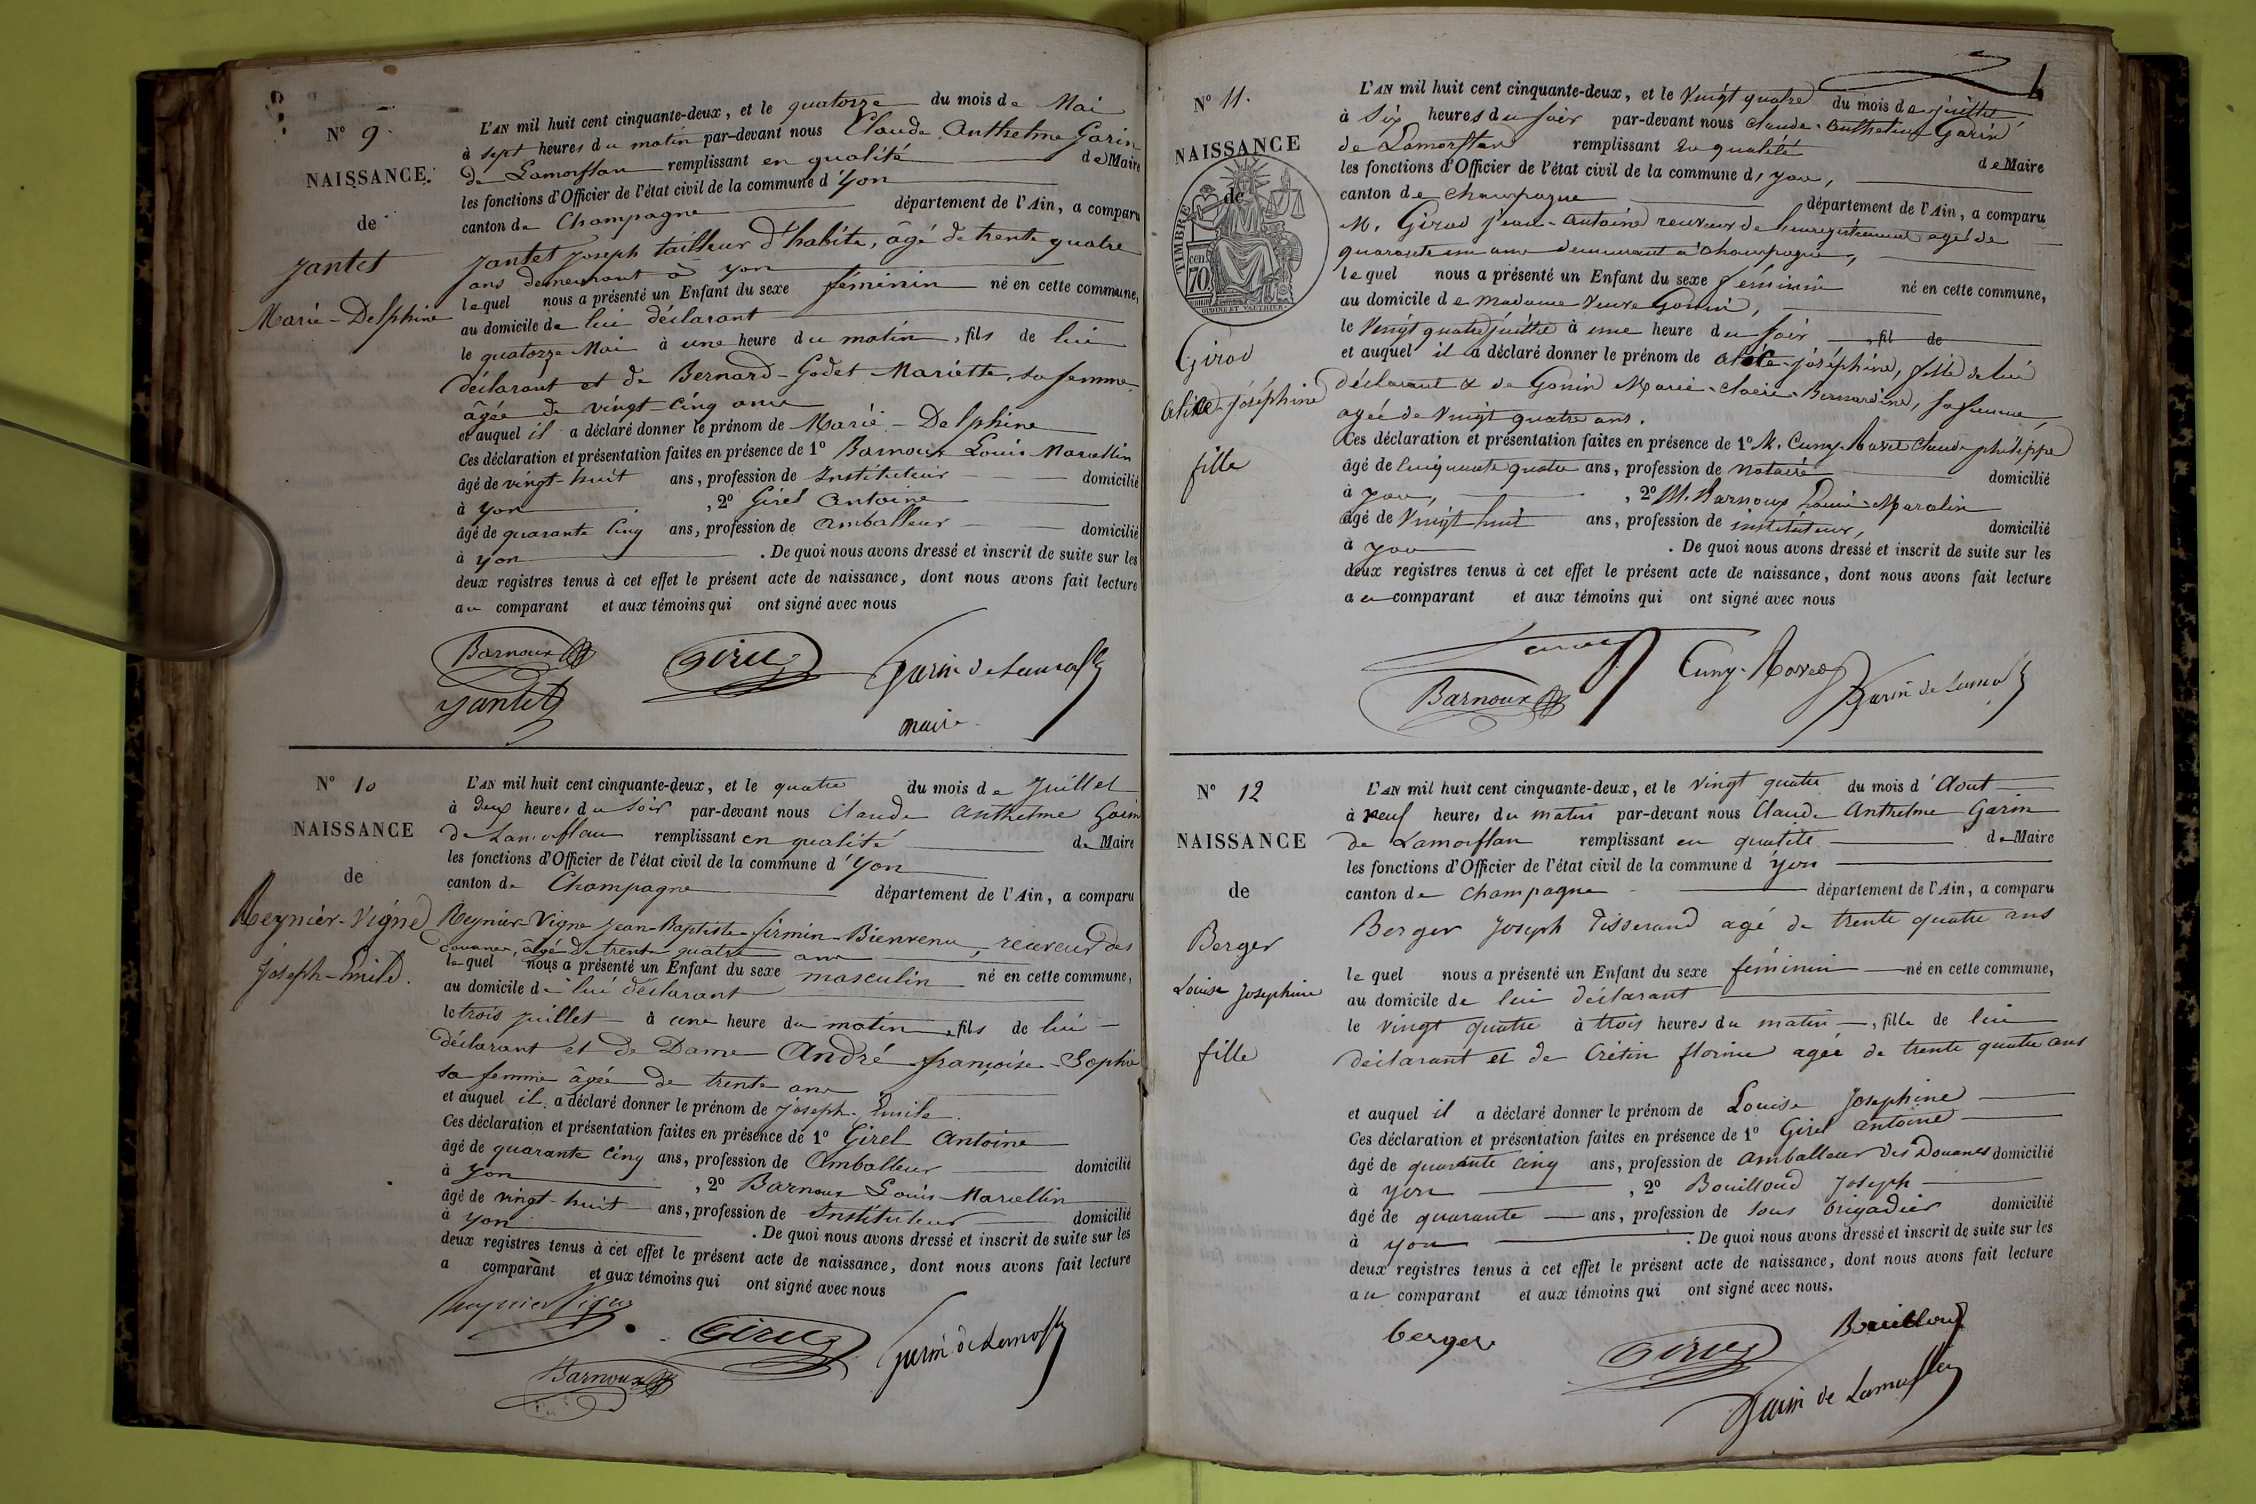 N° 9.
NAISSANCE
de
Jantet
Marie-Delphine
L'AN mil huit cent cinquante-deux, et le quatorze du mois de Mai
à sept heures du matin par-devant nous Claude Anthelme Garin
de Lamorflan remplissant en qualité de Maire
les fonctions d'Officier de l'état civil de la commune d'Yon
canton de Champagne département de l'Ain, a comparu
Jantet Joseph tailleur d'habits, âgé de trente quatre
ans demeurant à Yon
lequel nous a présenté un Enfant du sexe féminin né en cette commune,
au domicile de lui déclarant
le quatorze Mai à une heure du matin, fils de lui
déclarant et de Bernard-Godet Mariette, sa femme
âgée de vingt-cinq ans
et auquel il a déclaré donner le prénom de Marie-Delphine
Ces déclaration et présentation faites en présence de 1° Barnoux Louis Marcellin
âgé de vingt-huit ans, profession de Instituteur domicilié
à Yon, 2° Girel Antoine
âgé de quarante cinq ans, profession de Amballeur domicilié
à Yon. De quoi nous avons dressé et inscrit de suite sur les
deux registres tenus à cet effet le présent acte de naissance, dont nous avons fait lecture
au comparant et aux témoins qui ont signé avec nous
Barnoux Girel Garin de Lamorflan
Jantet
maire
N° 10
NAISSANCE
de
Reynier-Vigne
Joseph-Emile.
L'AN mil huit cent cinquante-deux, et le quatre du mois de Juillet
à deux heures du soir par-devant nous Claude Anthelme Garin
de Lamorflan remplissant en qualité de Maire
les fonctions d'Officier de l'état civil de la commune d'Yon
canton de Champagne département de l'Ain, a comparu
Reynier-Vigne Jean-Baptiste-firmin-Bienvenu, receveur des
douanes, âgé de trente quatre ans
lequel nous a présenté un Enfant du sexe masculin né en cette commune,
au domicile de lui déclarant
le trois juillet à une heure du matin, fils de lui
déclarant et de Dame André françoise-Sophie
sa femme âgée de trente ans
et auquel il a déclaré donner le prénom de Joseph-Emile.
Ces déclaration et présentation faites en présence de 1° Girel Antoine
âgé de quarante cinq ans, profession de Amballeur domicilié
à Yon, 2° Barnoux Louis-Marcellin
âgé de vingt-huit ans, profession de Instituteur domicilié
à Yon. De quoi nous avons dressé et inscrit de suite sur les
deux registres tenus à cet effet le présent acte de naissance, dont nous avons fait lecture
a comparant et aux témoins qui ont signé avec nous
Reynier Vigne Girel Garin de Lamorflan
Barnoux
N° 11.
NAISSANCE
de
TIMBRE
70 cen.
Girod
Alice-Joséphine
fille
L'AN mil huit cent cinquante-deux, et le Vingt quatre du mois de juillet
à Six heures du soir par-devant nous Claude-Anthelme Garin
de Lamorflan remplissant en qualité de Maire
les fonctions d'Officier de l'état civil de la commune d, yon,
canton de champagne département de l'Ain, a comparu
M. Girod Jean-Antoine receveur de l'enregistrement agé de
quarante un ans demeurant à Champagne,
lequel nous a présenté un Enfant du sexe féminin né en cette commune,
au domicile de Madame Veuve Gonin,
le Vingt quatre juillet à une heure du soir, fil de
et auquel il a déclaré donner le prénom de Alice-joséphine, fille de lui
déclarant & de Gonin Marie-Claire-Bernardine, sa femme
agée de Vingt quatre ans.
Ces déclaration et présentation faites en présence de 1° M. Cuny-Ravet Claude philippe
âgé de Cinquante quatre ans, profession de notaire domicilié
à yon, 2° M. Barnoux Louis-Marcelin
âgé de Vingt huit ans, profession de instituteur, domicilié
à yon. De quoi nous avons dressé et inscrit de suite sur les
deux registres tenus à cet effet le présent acte de naissance, dont nous avons fait lecture
au comparant et aux témoins qui ont signé avec nous
Cuny-Ravet
Barnoux Garin de Lamorflan
N° 12
NAISSANCE
de
Berger
Louise Josephine
fille
L'AN mil huit cent cinquante-deux, et le vingt quatre du mois d'Aout
à neuf heures du matin par-devant nous Claude Anthelme Garin
de Lamorflan remplissant en qualité de Maire
les fonctions d'Officier de l'état civil de la commune d'yon
canton de champagne département de l'Ain, a comparu
Berger Joseph Tisserand agé de trente quatre ans
lequel nous a présenté un Enfant du sexe féminin né en cette commune,
au domicile de lui déclarant
le vingt quatre à trois heures du matin, fille de lui
déclarant et de Crétin florine agée de trente quatre ans
et auquel il a déclaré donner le prénom de Louise Josephine
Ces déclaration et présentation faites en présence de 1° Girel antoine
âgé de quarante cinq ans, profession de Amballeur des Douanes domicilié
à yon, 2° Bouilloud Joseph
âgé de quarante ans, profession de sous brigadier domicilié
à yon. De quoi nous avons dressé et inscrit de suite sur les
deux registres tenus à cet effet le présent acte de naissance, dont nous avons fait lecture
au comparant et aux témoins qui ont signé avec nous.
berger Girel Bouilloud
Garin de Lamorflan